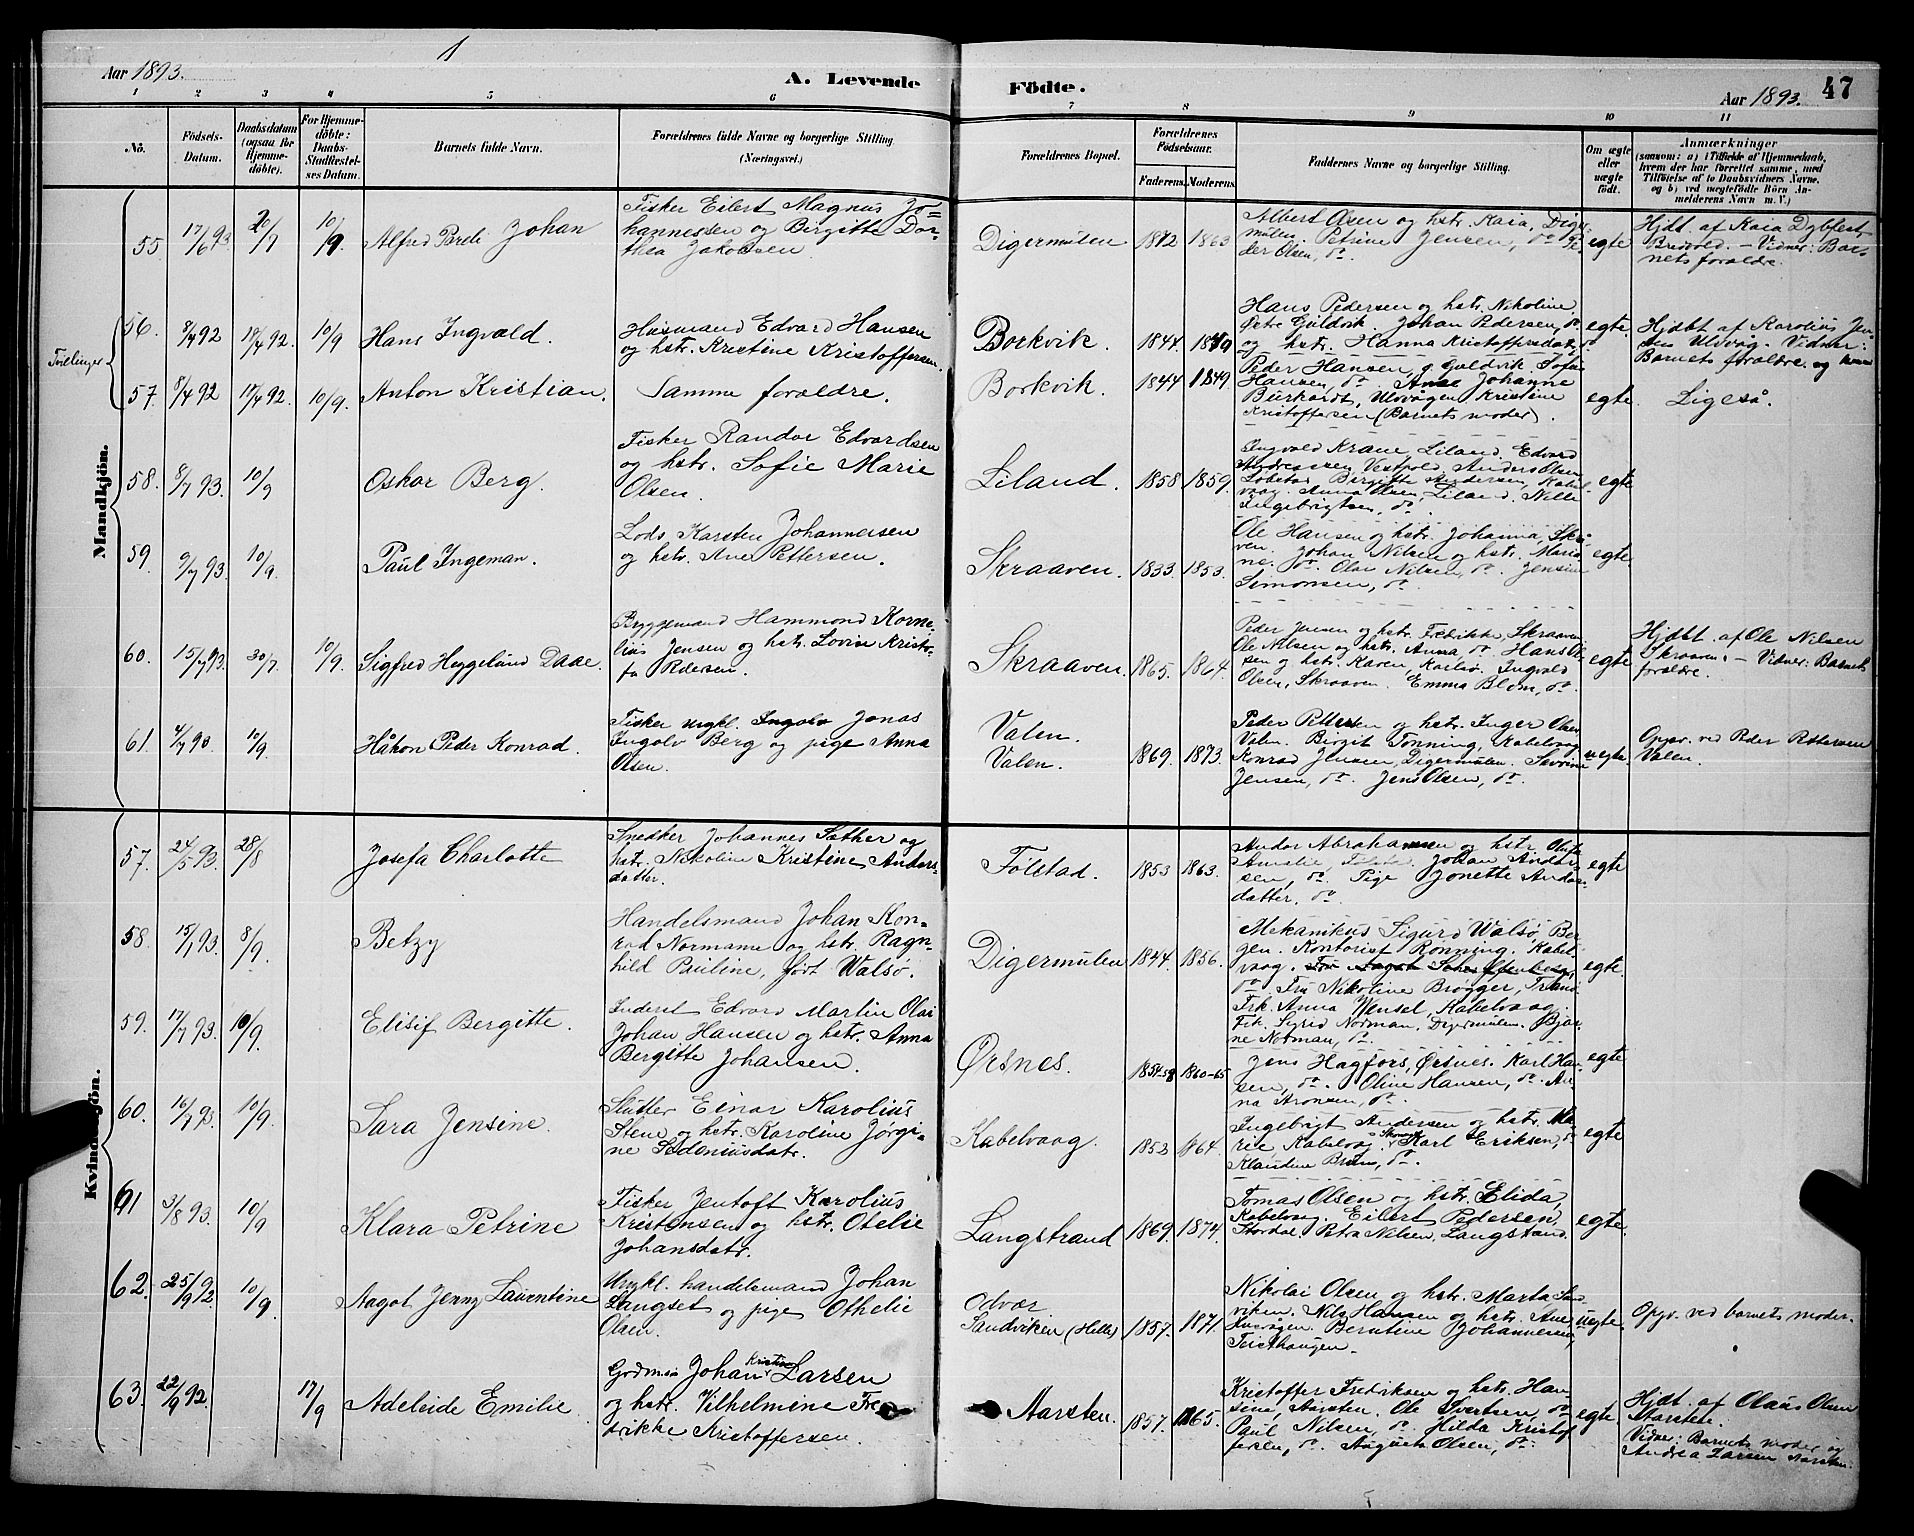 Aar 1893.
A. Levende
Födte.
Aar 1893.
47
1 2 3 4 5 6 7 8 9 10 11
No.
Födsels-
Datum.
Daabsdatum
(ogsaa for
Hjemme-
døbte).
For Hjemme-
döbte:
Daabs-
Stadfæstel-
ses Datum.
Barnets fulde Navn.
Forældrenes fulde Navne og borgerlige Stilling
(Næringsvei.)
Forældrenes Bopæl.
Forældrenes
Födselsaar.
Faderens. Moderens.
Faddernes Navne og borgerlige Stilling.
Om ægte
eller
uægte
födt.
Anmærkninger
(saasom: a) i Tilfælde af Hjemmedaab,
hvem der har forrettet samme, med
Tilföielse af to Daabsvidners Navne,
og b) ved uægtefödte Börn An-
melderens Navn m. V.)
Mandkjön.
55 17/6 93 2/7 10/9 Alfred Johan
Fisker Eilert Magnus Jo-
hannessen og Bergitte Dor-
thea Jakobsen
Digermulen 1872 1863
Albert Olsen og hstr. Kaia, Diger-
mulen. Petrine Jensen, do Pe-
der Olsen, do.
egte
Hjdt. af Kaia Dybfest
Bredvold. — Vidner: Bar-
nets forældre.
Tvillinger
56. 8/4 92 18/4 92. 10/9 Hans Ingvald.
Husmand Edvard Hansen
og hstr. Kristine Kristoffersen.
Borkvik. 1844. 1849
Hans Pedersen og hstr. Nikoline
Østre Guldvik. Johan Pedersen, do
og hstr. Hanna Kristoffersdatr. do
egte.
Hjdbt af Karolius Jen-
sen Ulvvåg. Vidner:
Barnets forældre og
57. 8/4 92 18/4 92. 10/9. Anton Kristian. Samme forældre.
Borkvik. 1844 1849.
Peder Hansen, g. Guldvik. Sofie
Hansen, do. Ane Johanne
Burkardt, Ulvvågen Kristine
Kristoffersen (Barnets moder).
egte. Ligeså.
58. 8/7 93. 10/9 Oskar Berg.
Fisker Randor Edvardsen
og hstr. Sofie Marie
Olsen.
Liland. 1858 1859.
Ingvald Krane, Liland. Edvard
Andreassen, Vestpold. Anders Olsen
Bergitte Andersen, Kabel-
vaag. Anna Olsen, Liland. Nille
Ingebrigtsen, do.
egte
59. 9/7 93. 10/9. Paul Ingeman.
Lods Karsten Johannessen
og hstr. Ane Pettersen.
Skraaven. 1833. 1853.
Ole Hansen og hstr. Johanna, Skra-
ven. Johan Nilsen og hstr. Maria-
ne, do. Olav Nilsen, do. Jensine
Simonsen, do.
egte.
60. 15/7 93. 30/7. 10/9. Sigfred Heggelund Daae.
Byggemand Hammond Korne-
lius Jensen og hstr. Lovise Kristo-
fa Pedersen.
Skraaven 1865. 1864.
Peder Jensen og hstr. Fredrikke, Skraaven
Ole Nilsen og hstr. Anna do. Hans Ol-
sen og hstr. Karen Karlsø. Ingvald
Olsen, Skraaven. Emma Blom, do.
egte
Hjdbt. af Ole Nilsen
Skraaven. — Vidner: Barnets
forældre.
61. 4/7 93 10/9. Håkon Peder Konrad.
Fisker ungkl. Ingolv Jonas
Ingolv Berg og pige Anna
Olsen.
Valen.
Valen. 1869. 1873.
Peder Pettersen og hstr. Inger Olsen
Valen. Birgit Tønning, Kabelvaag
Konrad Jensen, Digermulen. Severine
Jensen, do. Jens Olsen, do.
uegte.
Opgv. ved Peder Pettersen
Valen.
Kvindekjön.
57. 24/5 93. 28/8 Josefa Charlotte
Snedker Johannes Sæther og
hstr. Nikoline Kristine Anders-
datter.
Følstad. 1853 1863.
Andor Abrahamsen og hstr Olufa
Amalie, Følstad. Johan Ander-
sen, do. Pige Jonette Anders-
datter, do.
egte
58. 15/1 93. 8/9. Betzy
Handelsmand Johan Kon-
rad Normann og hstr. Ragn-
hild Pauline, født Walsø.
Digermulen 1844. 1856.
Mekanikus Sigurd Walsø, Ber-
gen. Kontorist Rønning, Kabel-
vaag.
do. Fru Nikoline Brøgger, Tranø
Frk. Anna Wensel, Kabelvaag.
Frk. Sigrid Norman, Digermulen. Bjar-
ne Norman, do.
egte.
59. 17/7 93. 10/9. Elisif Bergitte.
Inderst Edvard Martin Olai
Johan Hansen og hstr. Anna
Bergitte Johansen.
Ørsnes. 1854-58 1860-65
Jens Hagfors, Ørsnes. Karl Han-
sen, do. Oline Hansen, do. An-
na Aronsen, do.
egte
60. 16/7 93. 10/9. Sara Jensine.
Slutter Einar Karolius
Stene og hstr. Karoline Jørgi-
ne Sedeniusdatr.
Kabelvaag. 1852 1864.
Ingebrigt Andersen og hstr. Ma-
rie, Kabelvaag. Karl Eriksen, do
Klaudine Bruun, do.
egte
61 3/8 93. 10/9 Klara Petrine
Fisker Jentoft Karolius
Kristensen og hstr. Otelie
Johansdatr.
Langstrand 1869. 1874.
Tomas Olsen og hstr. Elida,
Kabelvaag. Eilert Pedersen,
Stordal. Petra Nilsen, Langstrand.
egte.
62. 25/9 92 10/9. Aagot Jenny Laurentine
Ungkl. handelsmand Johan
Langset og pige Othelie
Olsen.
Odvær
Sandviken (Helle) 1857. 1871.
Nikolai Olsen og hstr. Marta Sand-
viken. Nils Hansen og hstr. Ane,
Husvågen. Berntine Johannesen,
Teisthaugen.
uegte.
Opgv. ved barnets moder.
63. 22/9 92. 17/9 Adeleide Emilie.
Gårdmand Johan Kristian Larsen
og hstr. Vilhelmine Fre-
drikke Kristoffersen.
Aarsten. 1857. 1865.
Kristoffer Fredriksen og hstr. Han-
sine, Aarsten. Ole Ivertsen, do
Paul Nilsen, do. Hilda Kristof-
fersen, do. Augusta Olsen, do.
egte
Hjdt. af Olaus Olsen
Aarsten.
Vidner: Barnets moder og
Andrea Larsen Aarsten.